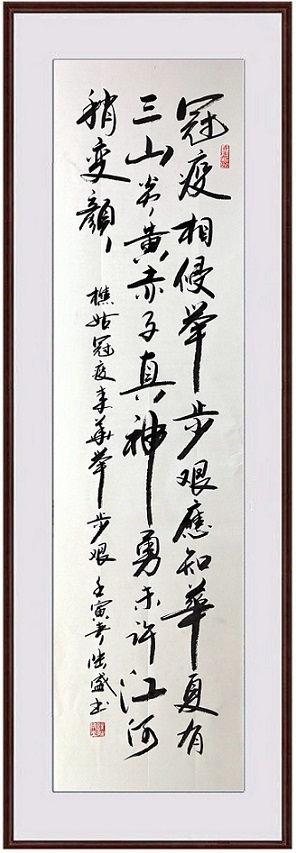 冠疫相侵举步艰應知華夏有
三山炎黄赤子真神勇未许江河
稍变颜
樵姑冠疫来華举步艰 壬寅春 盛书